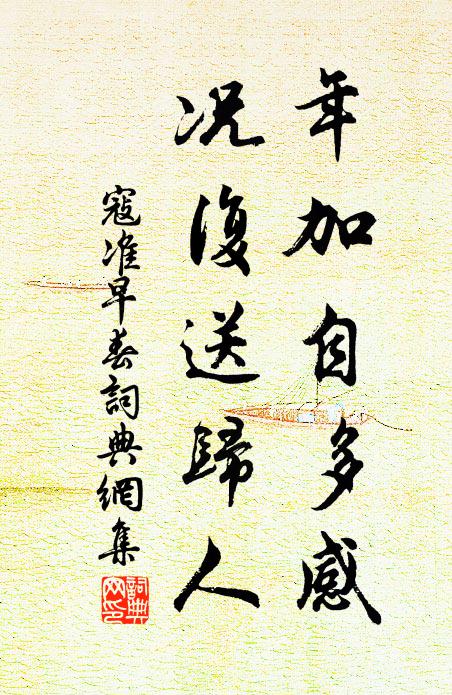 年加自多感
况復送歸人
寇准早春詞典網集
詞典網印